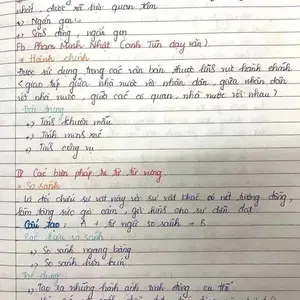 nhất được xã hội quan tâm
+, Ngắn gọn
+, Sinh động, ngắn gọn
Fb. Phạm Minh Nhật (Cánh Tiến dạy văn)
* Hành chính
Được sử dụng trong các văn bản thuộc lĩnh vực hành chính
< giao tiếp giữa nhà nước với nhân dân, giữa nhân dân
với nhà nước, giữa các cơ quan, nhà nước với nhau)
Đặc trưng
+, Tính khuôn mẫu
+, Tính minh xác
+, Tính công vụ
II Các biện pháp tu từ từ vựng
* So sánh
Là đối chiếu sự vật này với sự vật khác có nét tương đồng,
làm tăng sức gợi cảm, gợi hình cho sự diễn đạt.
Cấu tạo: A + từ ngữ so sánh + B
Các kiểu so sánh
+, So sánh ngang bằng
+, So sánh hơn kém
Tác dụng
+, Tạo ra những hình ảnh sinh động, cụ thể